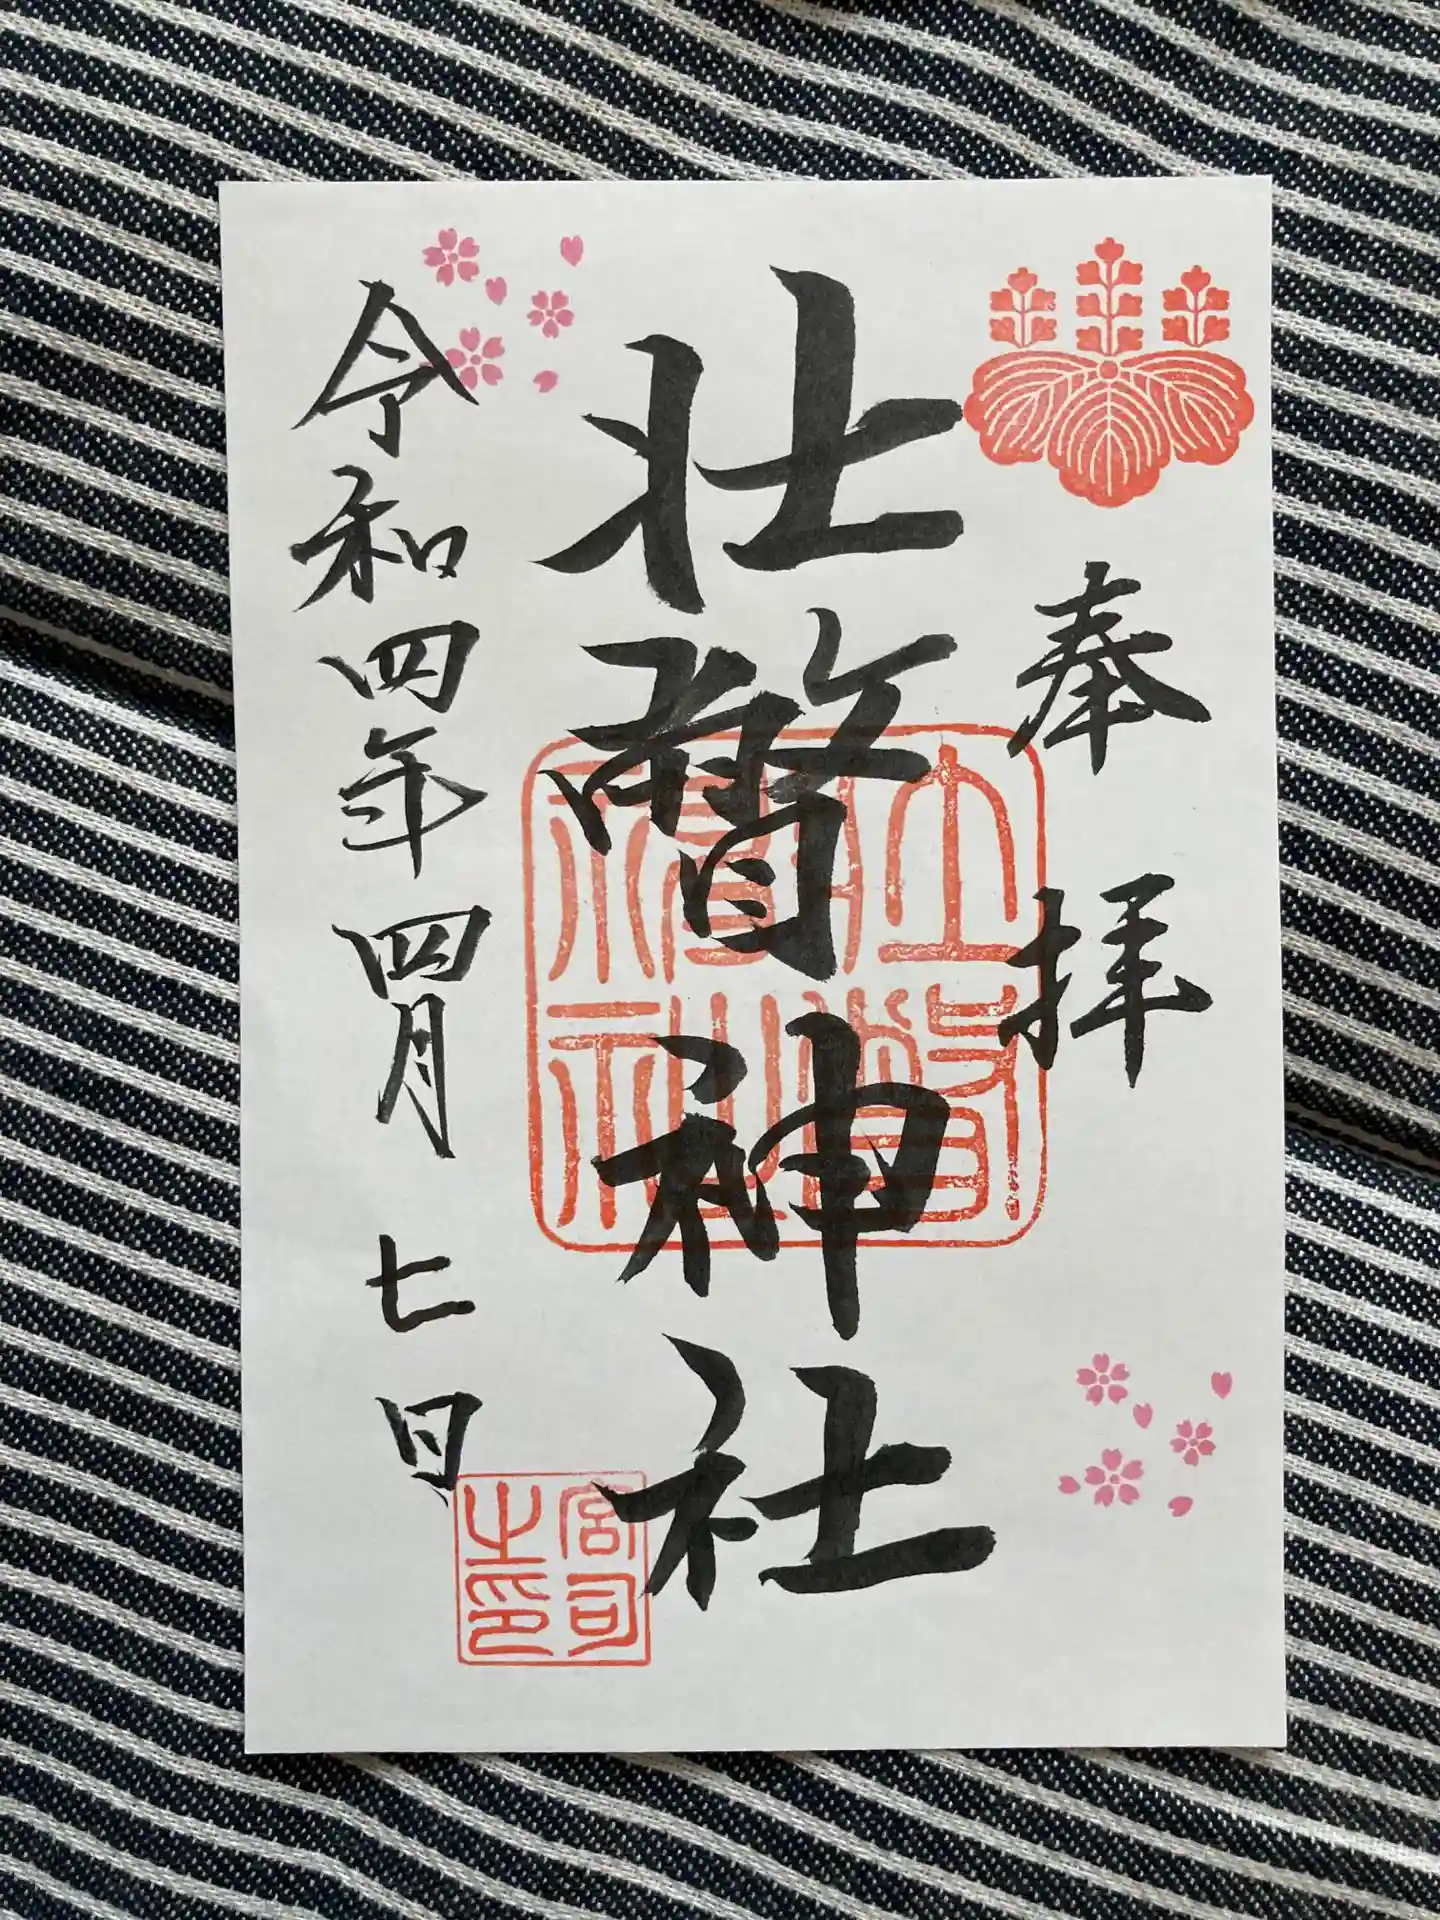 奉拝
壮瞥神社
令和四年四月七日
宮司之印